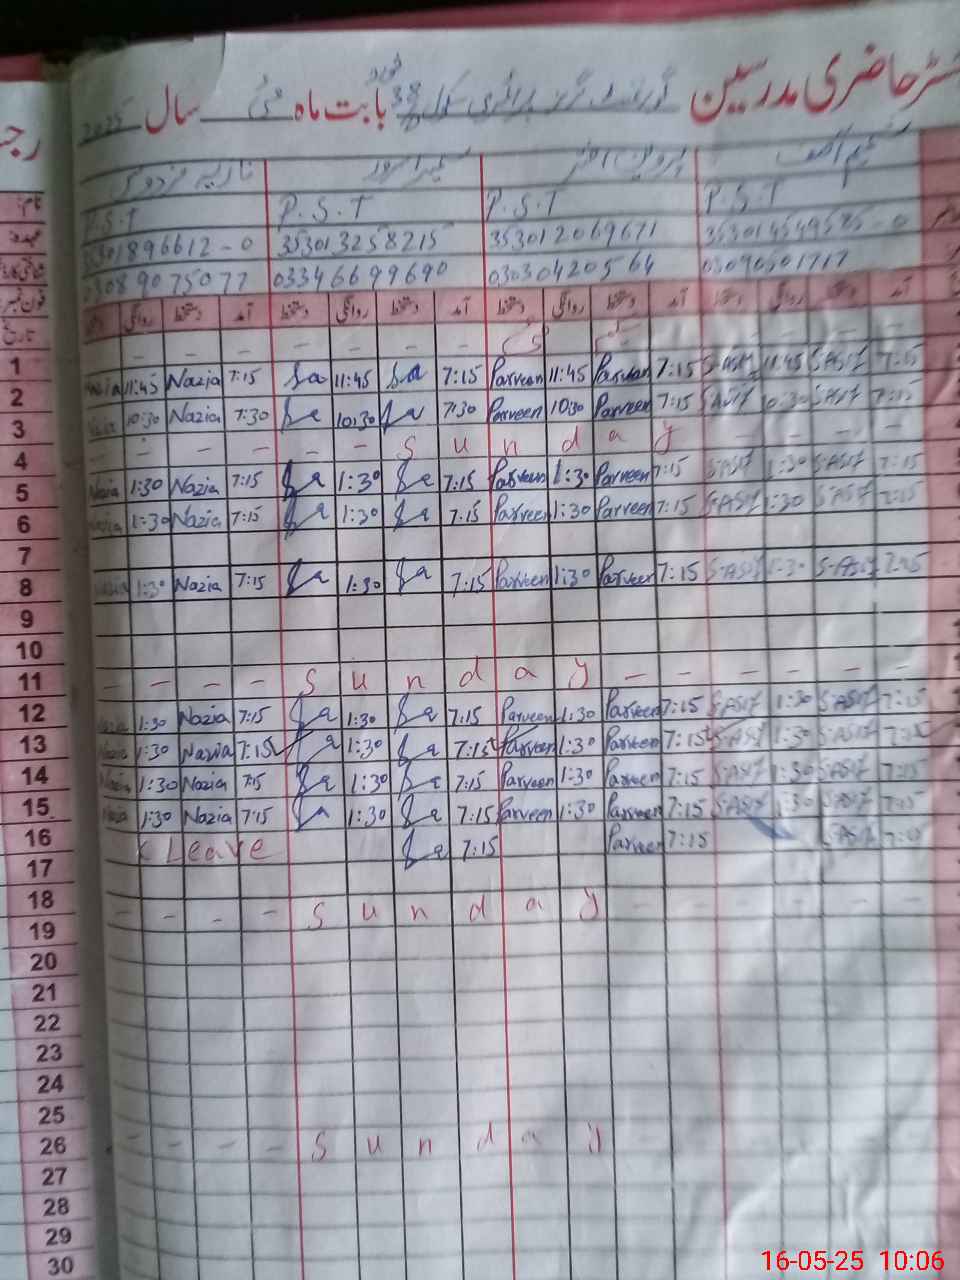 رجسٹر حاضری مدرسین گورنمنٹ گرلز پرائمری سکول 38 بابت ماہ مئی سال 2025
P.S.T P.S.T P.S.T P.S.T
353013258215 353012069671
03346699690 03030420564
دستخط روانگی دستخط آمد دستخط روانگی دستخط آمد دستخط روانگی دستخط آمد روانگی دستخط آمد
تاریخ
1
2 Nazia 11:45 Nazia 7:15 Sa 11:45 Sa 7:15 Parveen 11:45 Parveen 7:15 S.ASIF 11:45 S.ASIF 7:15
3 10:30 Nazia 7:30 Sa 10:30 Sa 7:30 Parveen 10:30 Parveen 7:15 S.ASIF 10:30 S.ASIF 7:15
4 Sunday
5 Nazia 1:30 Nazia 7:15 Sa 1:30 Sa 7:15 Parveen 1:30 Parveen 7:15 S.ASIF 1:30 S.ASIF 7:15
6 Nazia 1:30 Nazia 7:15 Sa 1:30 Sa 7:15 Parveen 1:30 Parveen 7:15 S.ASIF 1:30 S.ASIF 7:15
7
8 Nazia 1:30 Nazia 7:15 Sa 1:30 Sa 7:15 Parveen 1:30 Parveen 7:15 S.ASIF 1:30 S.ASIF 7:15
9
10
11 Sunday
12 Nazia 1:30 Nazia 7:15 Sa 1:30 Sa 7:15 Parveen 1:30 Parveen 7:15 S.ASIF 1:30 S.ASIF 7:15
13 Nazia 1:30 Nazia 7:15 Sa 1:30 Sa 7:15 Parveen 1:30 Parveen 7:15 S.ASIF 1:30 S.ASIF 7:15
14 Nazia 1:30 Nazia 7:15 Sa 1:30 Sa 7:15 Parveen 1:30 Parveen 7:15 S.ASIF 1:30 S.ASIF 7:15
15 Nazia 1:30 Nazia 7:15 Sa 1:30 Sa 7:15 Parveen 1:30 Parveen 7:15 S.ASIF 1:30 S.ASIF 7:15
16 Leave Sa 7:15 Parveen 7:15 S.ASIF 7:15
17
18 Sunday
19
20
21
22
23
24
25
26 Sunday
27
28
29
30
16-05-25 10:06